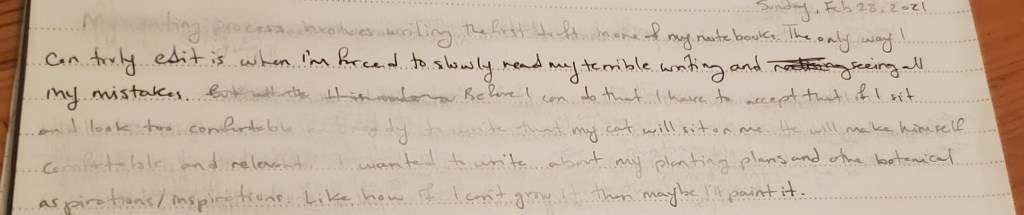 Sunday, Feb 28, 2021
My writing process involves writing the first draft in one of my notebooks. The only way I
can truly edit is when I'm forced to slowly read my terrible writing and seeing all
my mistakes. Before I can do that I have to accept that if I sit
and look too comfortable ready to write that my cat will sit on me. He will make himself
comfortable and relevant. I wanted to write about my planting plans and other botanical
aspirations/inspirations. Like how if I can't grow it then maybe I'll paint it.